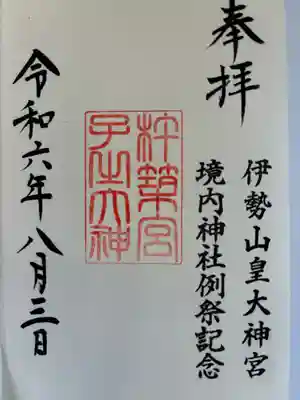 奉拝
伊勢山皇大神宮
境内神社例祭記念
杵築宮
子之大神
令和六年八月三日